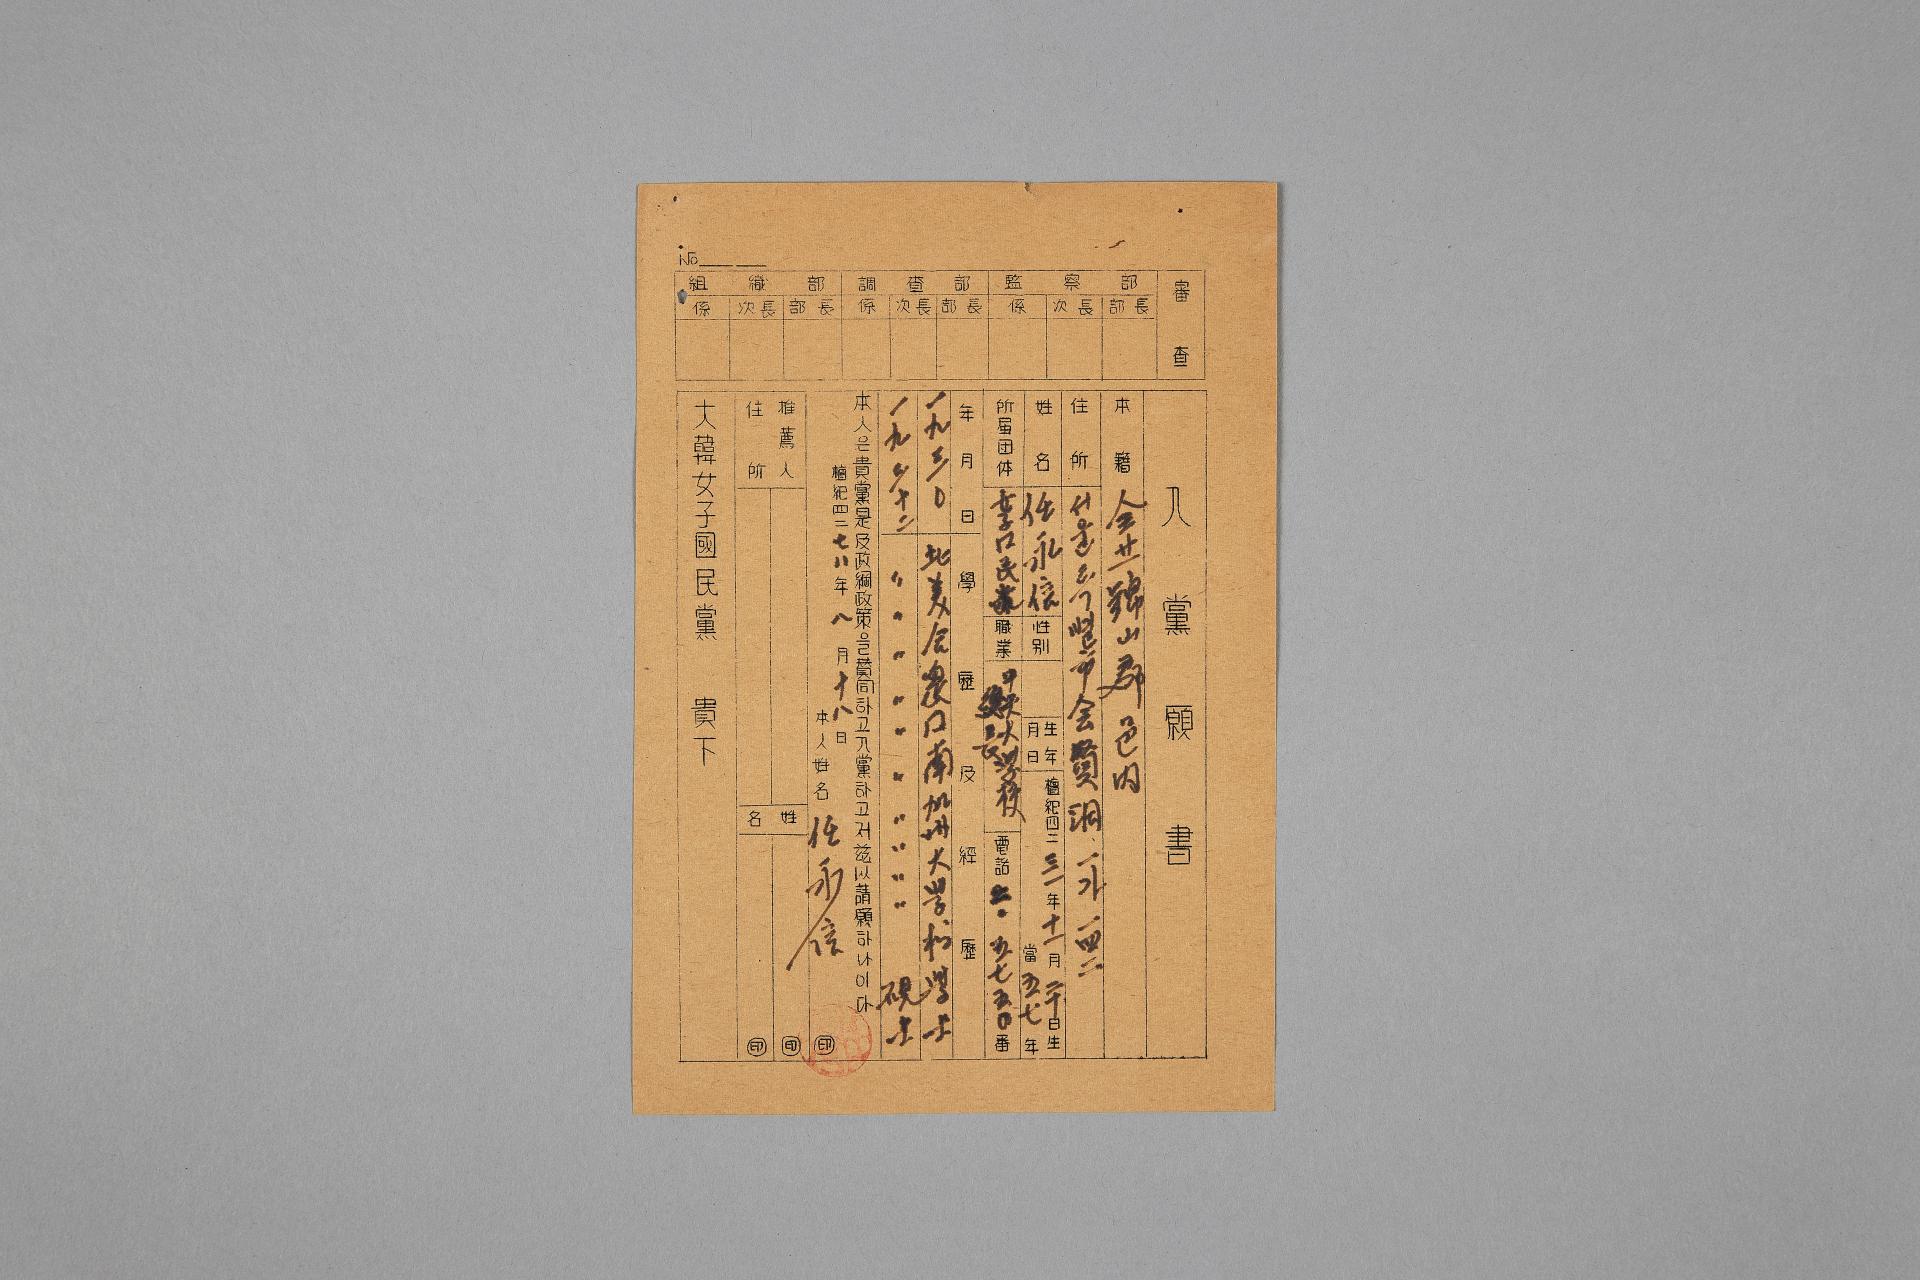 No
審査
監察部
部長
次長
係
調査部
部長
次長
係
組織部
部長
次長
係
入黨願書
本籍
全北錦山郡邑内
住所
서울시 中區 會賢洞 一가 一四二
姓名
任永信
性別
生年月日
檀紀四二三二年十一月二十日生
當五七年
所属団体
女子口民黨
職業
中央大学校
電話
五七五0番
年月日
學歴及経歴
一九三0
北美合衆口南加州大学校 学士
一九三十二
〃〃〃〃〃〃〃〃〃〃 碩士
本人은貴黨是及政綱政策을賛同하고入黨하고저玆以請願하나이다
檀紀四二七八年八月十八日
本人姓名 任永信 印
推薦人
住所
姓名
印
印
大韓女子國民黨 貴下